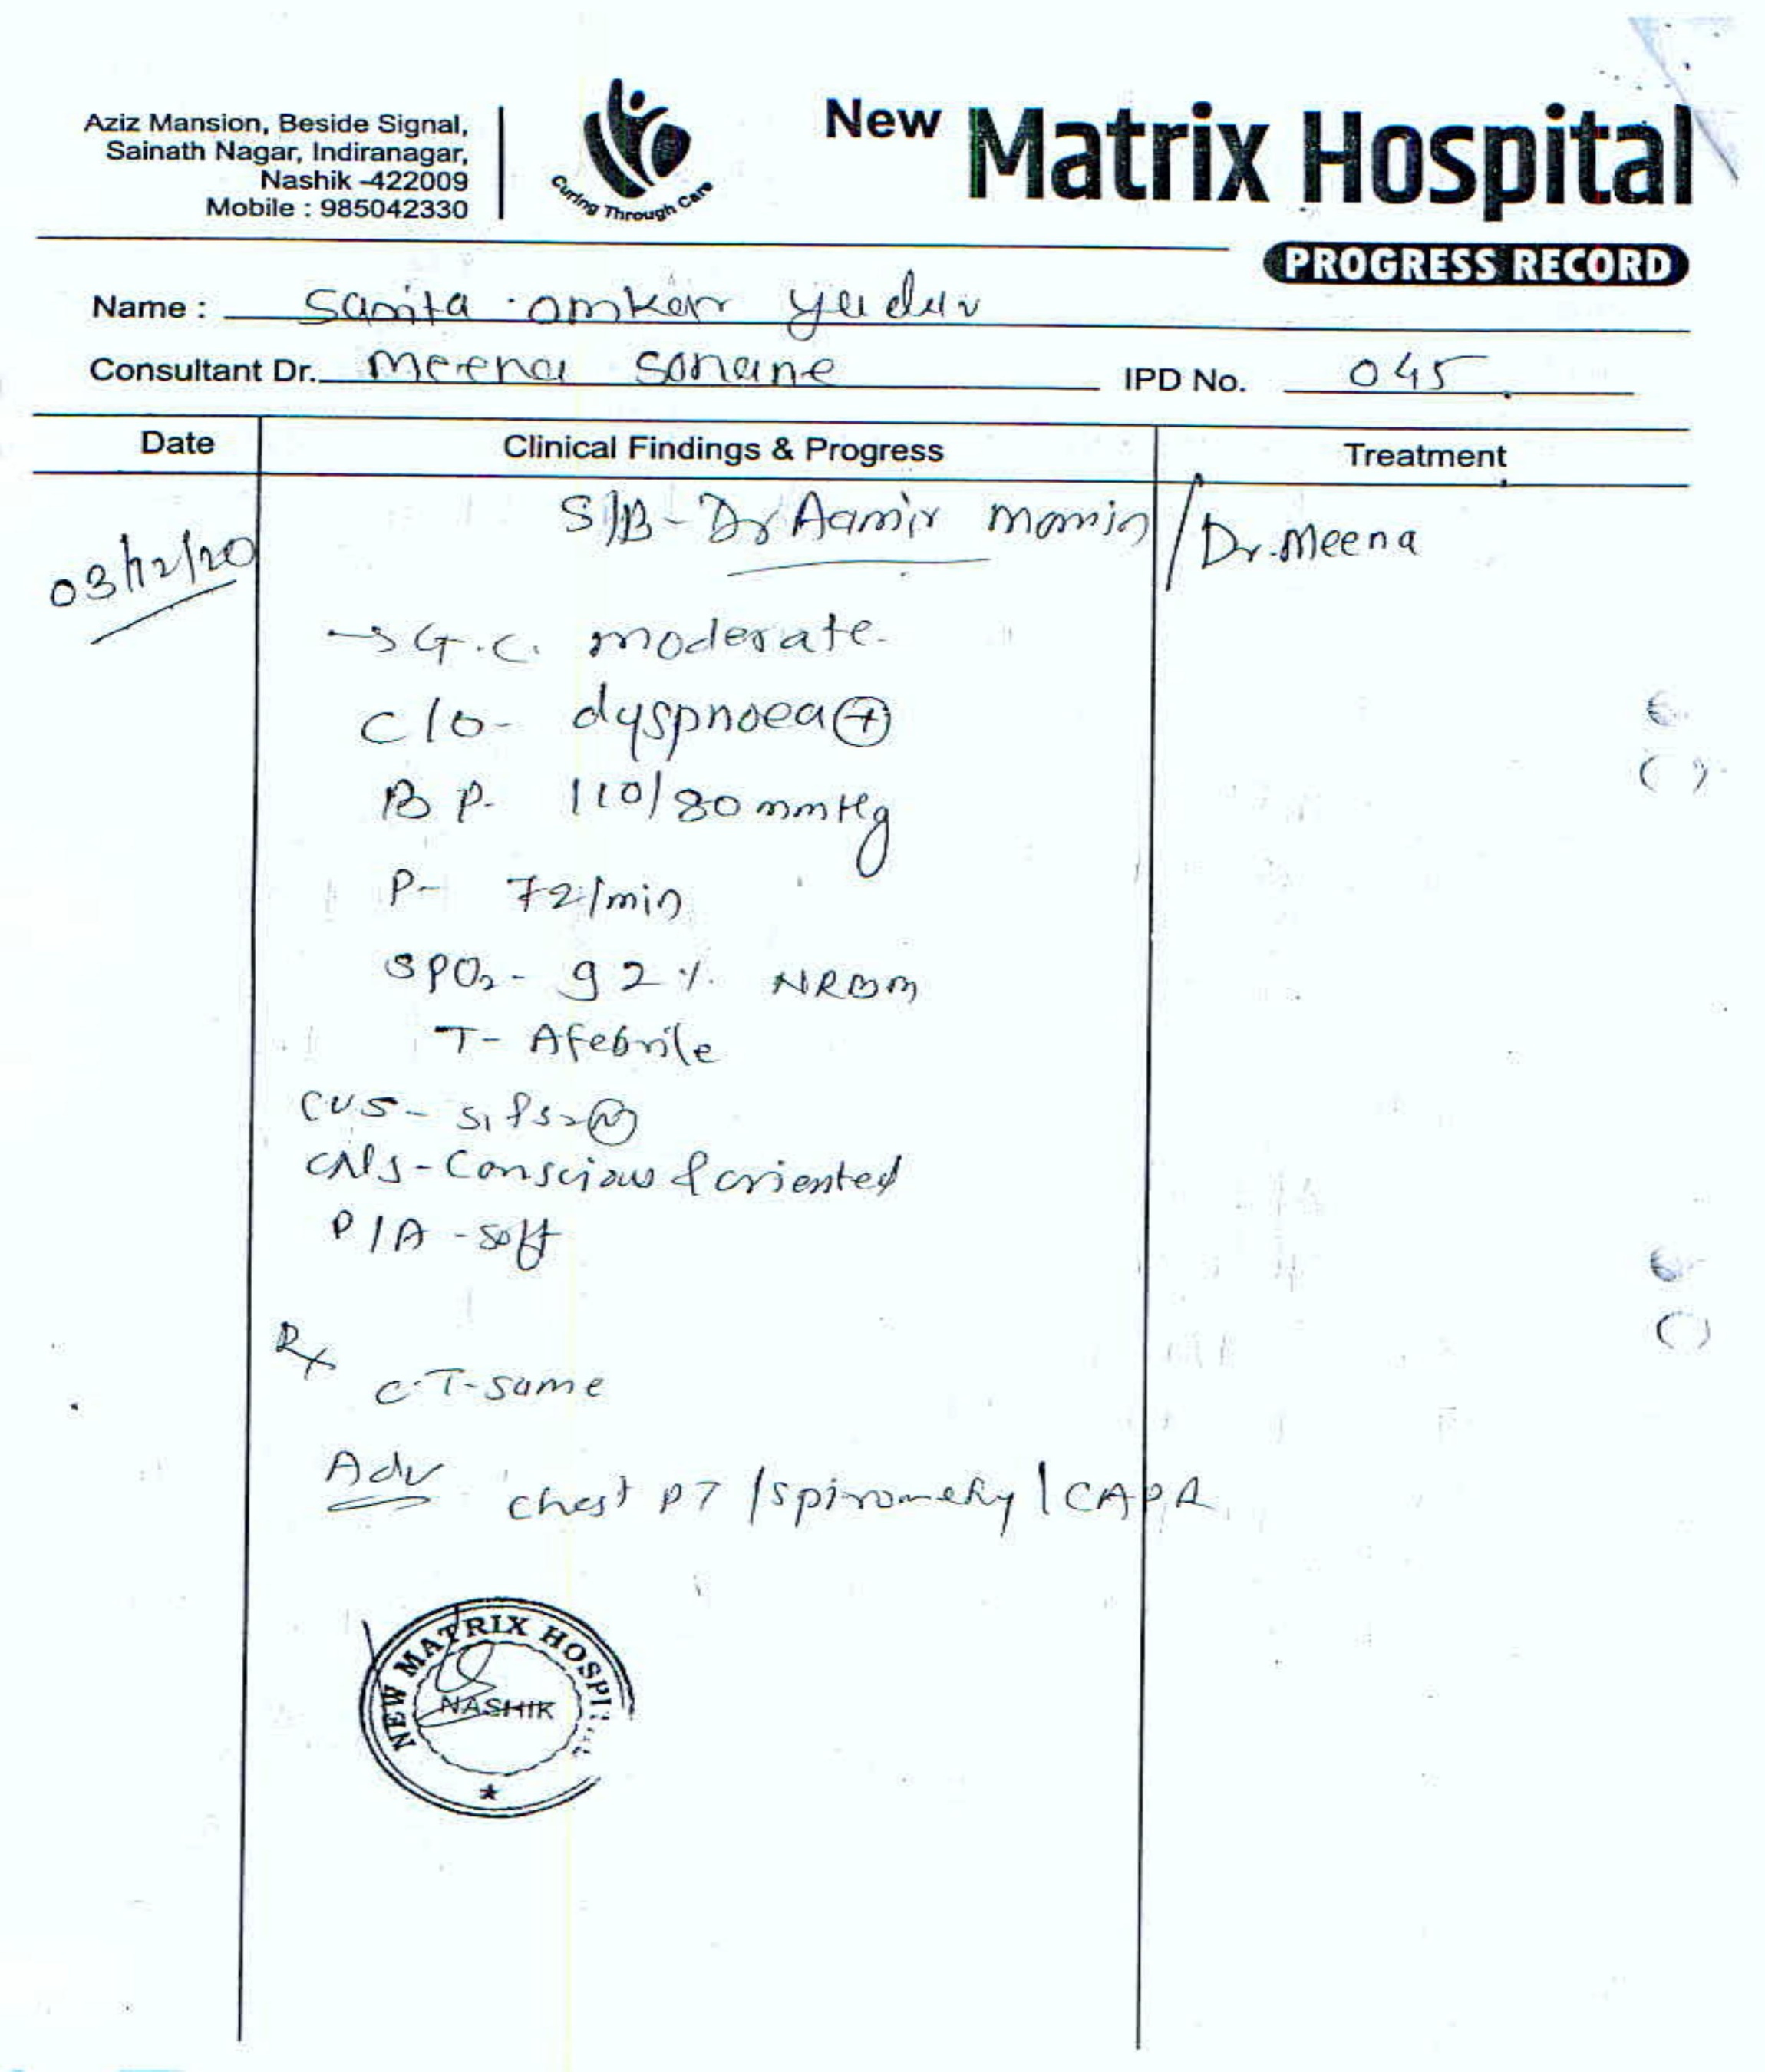 Aziz Mansion, Beside Signal,
Sainath Nagar, Indiranagar,
Nashik -422009
Mobile : 985042330
Curing Through Care
New Matrix Hospital
PROGRESS RECORD
Name : Sarita omkar yadav
Consultant Dr. Meena Sonane IPD No. 045
Date Clinical Findings & Progress Treatment
S/B - Dr Aamir momin / Dr. Meena
03/12/20
→ G.C. moderate.
C/o - dyspnoea ⊕
B P. 110/80 mmHg
P- 72/min
SPO₂ - 92 % NRBM
T- Afebrile
CVS - S₁ & S₂ Ⓝ
CNS - Conscious & oriented
P/A - soft
Rx
C.T - same
Adv chest PT / spirometry / CAPR
NEW MATRIX HOSPI
NASHIK